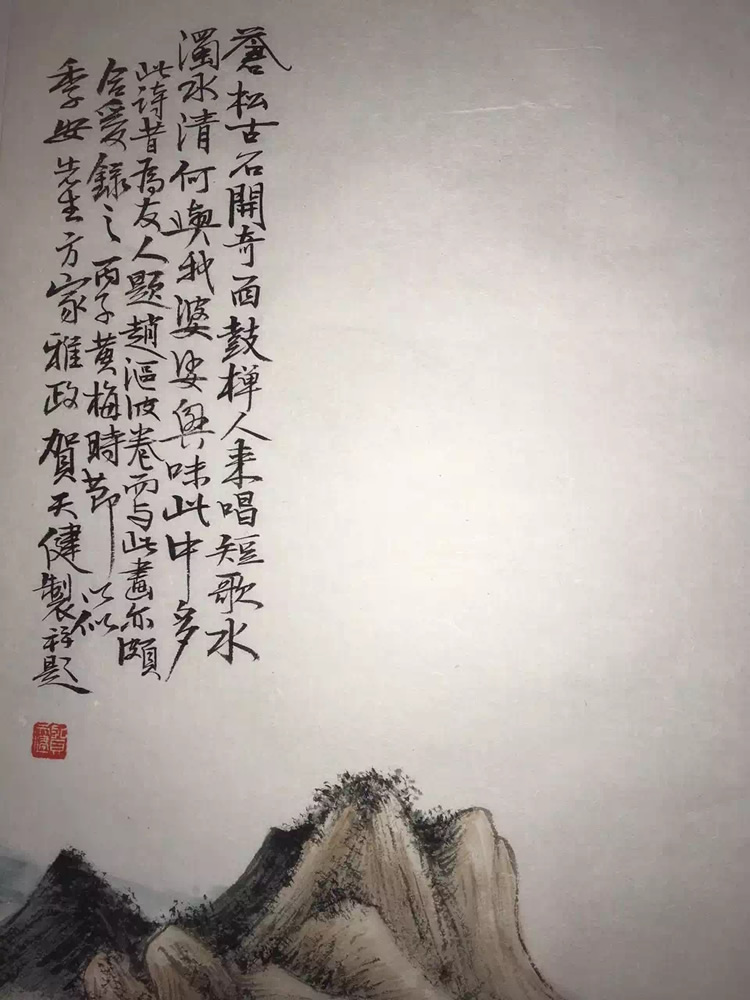 蒼松古石開奇面鼓櫂人来唱短歌水
濁水清何與我婆娑興味此中多
此詩昔為友人題趙漚波卷而与此畫亦頗
合爰錄之丙子黄梅時節以似
季安先生方家雅政賀天健製并題
賀天健